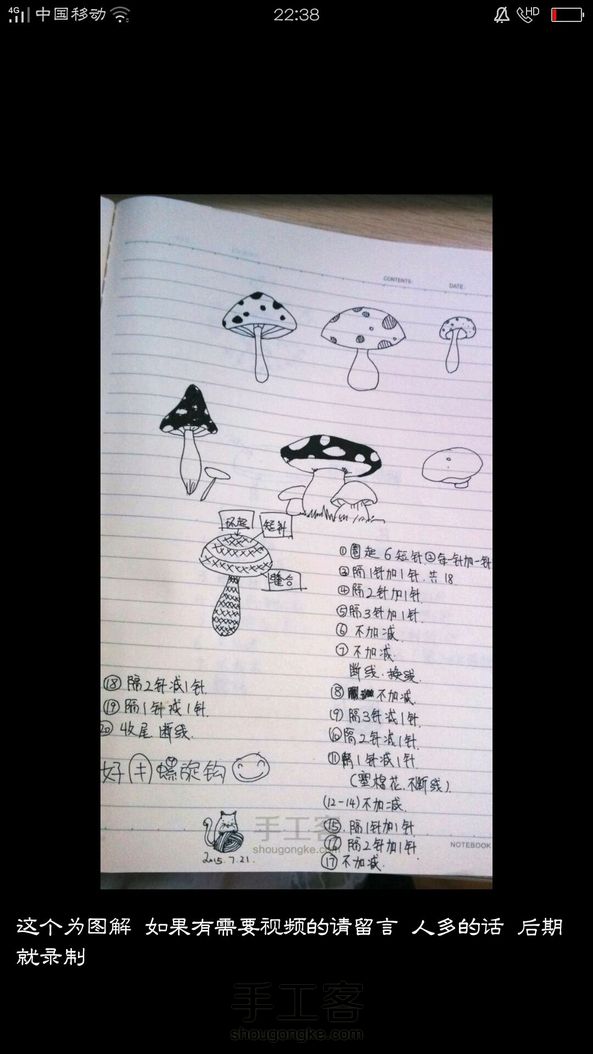 4G 中国移动 22:38 HD
CONTENTS: DATE:
环起 短针
缝合
①圈起6短针②每针加一针
③隔1针加1针.共18
④隔2针加1针
⑤隔3针加1针.
⑥不加减.
⑦不加减.
断线.换线.
⑧不加减.
⑨隔3针减1针.
⑩隔2针减1针.
⑪隔1针减1针
(塞棉花.不断线)
(12-14)不加减.
⑮.隔1针加1针
⑯隔2针加1针.
⑰不加减.
⑱隔2针减1针
⑲隔1针减1针.
⑳收尾.断线.
2015.7.21.
手工客
shougongke.com
NOTEBOOK
这个为图解 如果有需要视频的请留言 人多的话 后期
就录制
手工客
shougongke.com